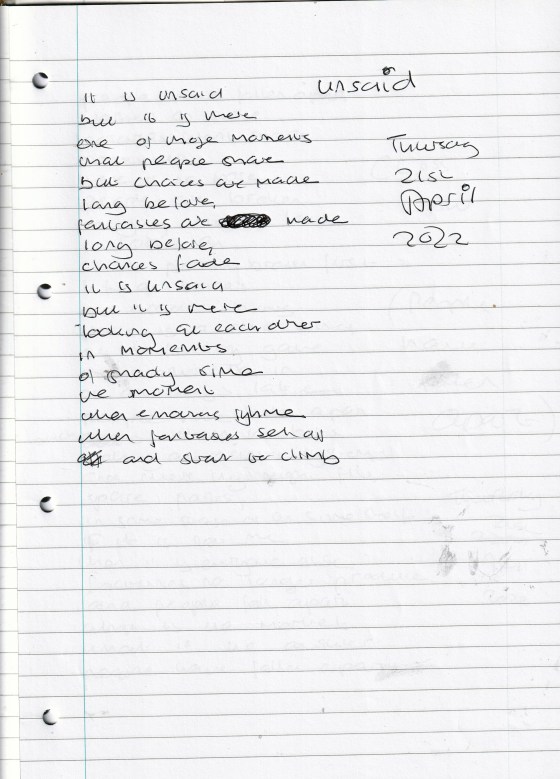 unsaid
it is unsaid
but it is there
one of those moments
that people share
but choices are made
long before,
fantasies are made
long before,
chances fade
it is unsaid
but it is there
looking at each other
in moments
of shady time
the moment
when emotions rhyme
when fantasies set off
and start to climb
Thursday
21st
April
2022